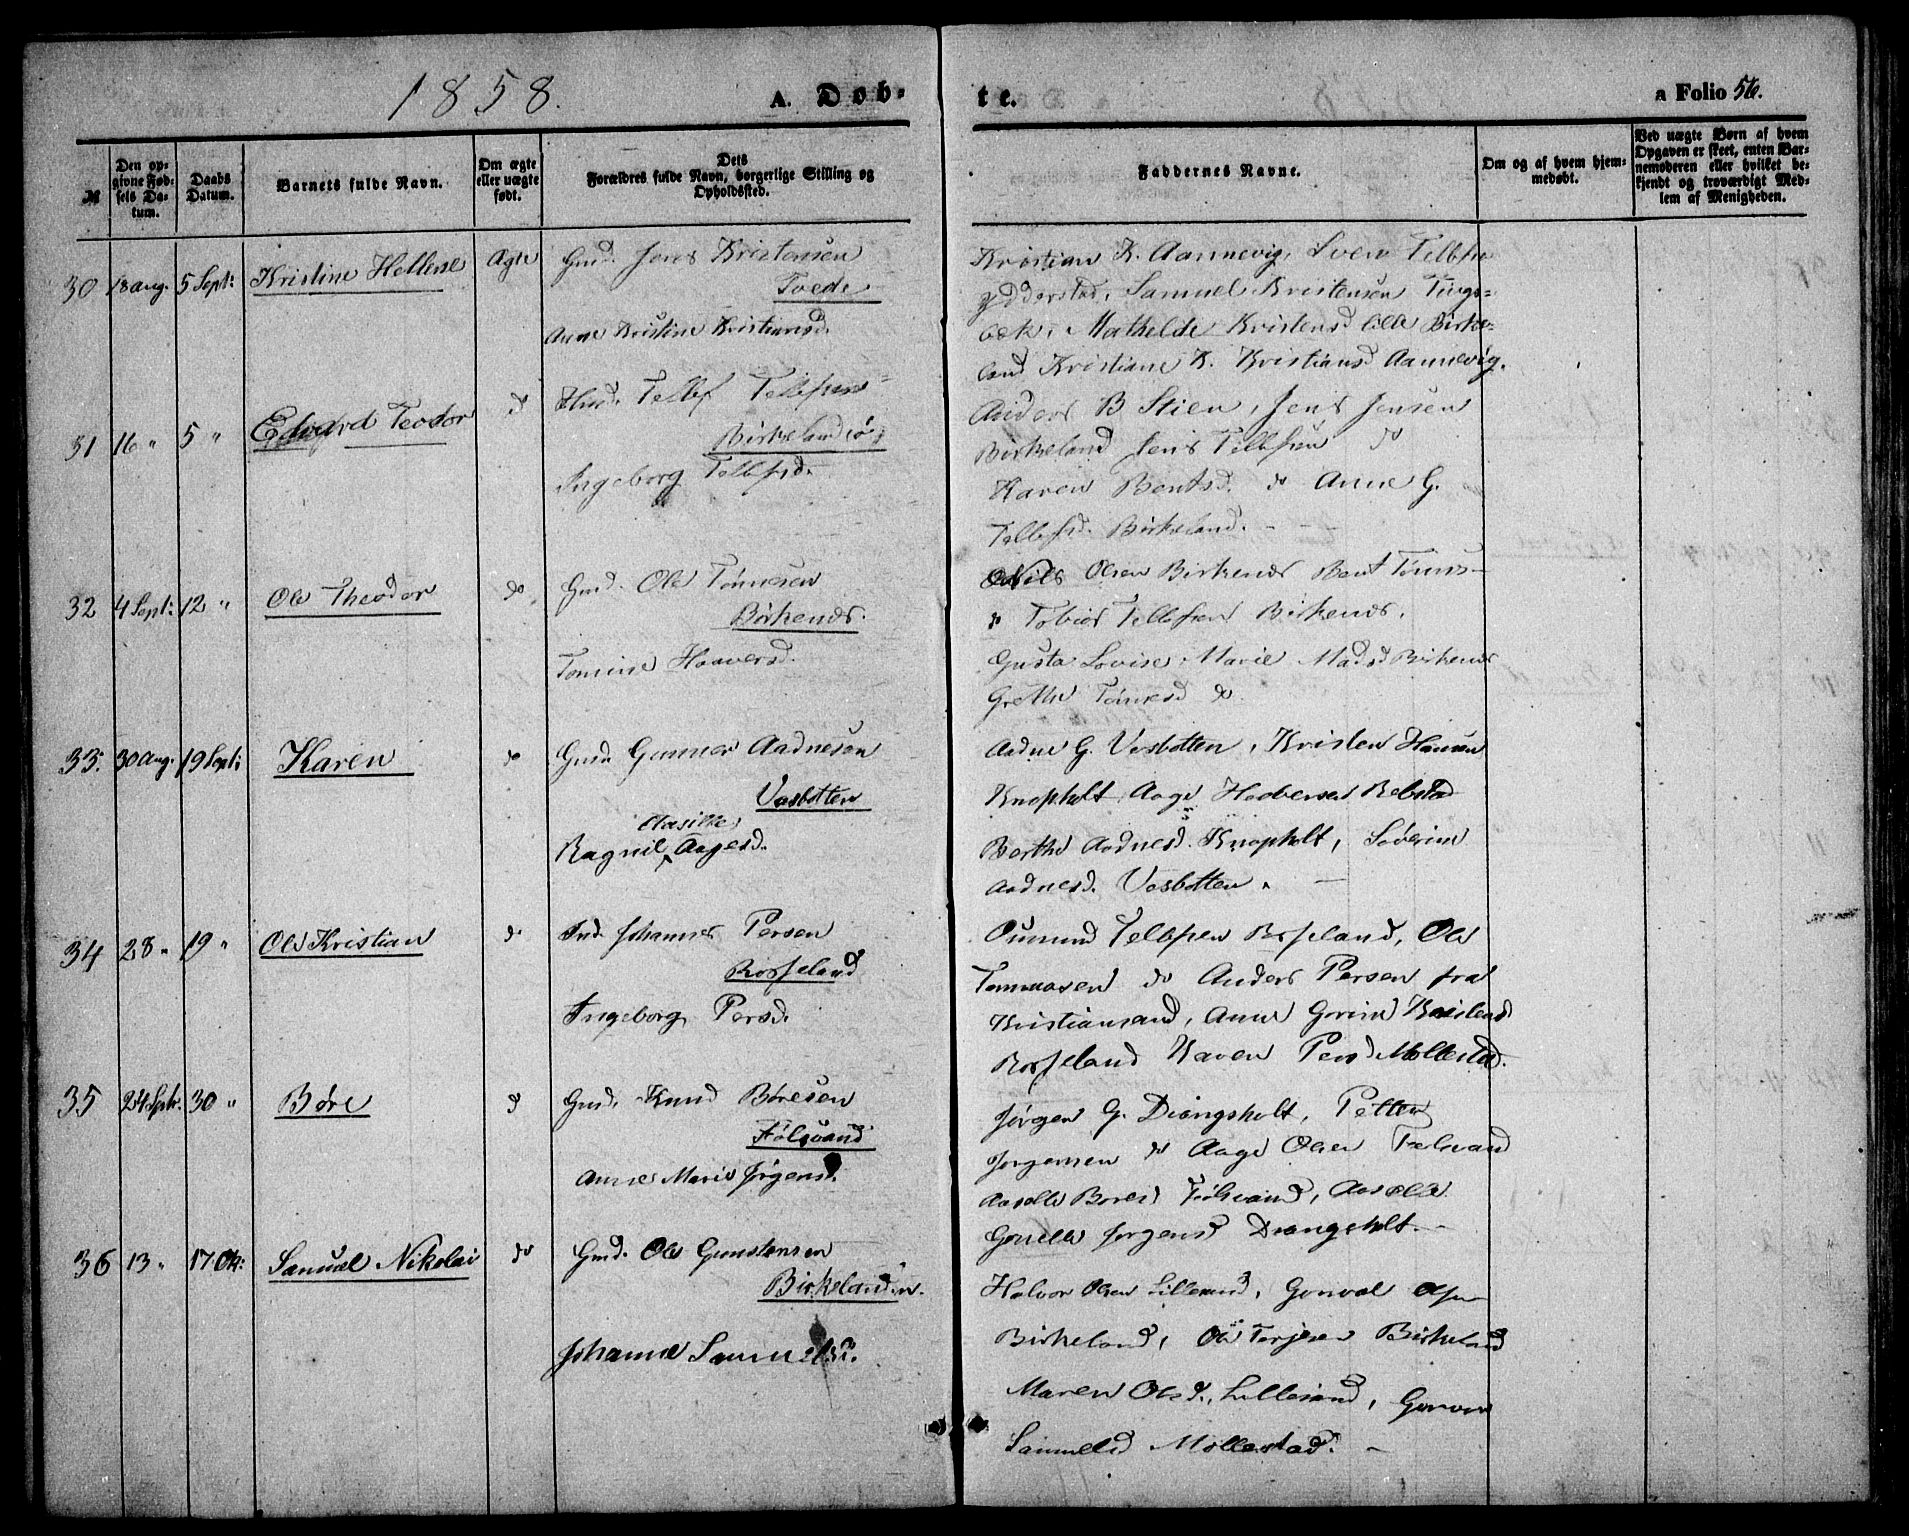 1858.
A. Døb-
te.
a Folio 56.
№
Den op-
givne Fød-
sels Da-
tum.
Daabs
Datum.
Barnets fulde Navn.
Om ægte
eller uægte
født.
Dets
Forældres fulde Navn, borgerlige Stilling og
Opholdssted.
Faddernes Navne.
Om og af hvem hjem-
medøbt.
Ved uægte Børn af hvem
Opgaven er skeet, enten Bar-
nemoderen eller hvilket be-
kjendt og troværdigt Med-
lem af Menigheden.
30 18 aug. 5 Sept: Kristine Hellene Ægte Gmd. Jens Kristensen
Tvede
Anne Kristine Kristiansd.
Kristian K. Aannevig, Sven Tellefsen
Samuel Kristensen Tings-
bæk, Mathelde Kristensd lille Birke-
land Kristiane K. Kristiansd Aannevig.
31 16 " 5 " Edvard Teodor do Hmd. Tellef Tellefsen
Birkeland
Ingeborg Tellefsd.
Anders B Stien, Jens Jensen
Birkeland Jens Tellefsen do
Karen Bentsd. do Anne G.
Tellefsd. Birkeland. - -
32 4 Sept: 12 " Ole Theodor do Gmd. Ole Tønnesen
Birkenæs.
Tomine Haaversd.
Nils Olsen Birkenæs Bent Tønnes-
" Tobias Tellefsen Birkenæs.
Gusta Lovise Marie Madsd Birkenæs
Grethe Tønnesd do.
33. 30 Aug. 19 Sept: Karen do Gmd. Gunner Aadnesen
Vasbotten
Aasille
Ragnil Aagesd.
Aadne G. Vasbotten, Kristen Hansen
Knapholt, Aage Rebstad
Berthe Aadnesd. Knapholt, Søverine
Aadnesd. Vasbotten. -
34 28 " 19 " Ole Kristian do Ind. Johannes Persen
Rosseland
Ingeborg Persd.
Gumund Tellefsen Rosseland, Ole
Tommasen do Anders Persen fra
Kristiansand, Anne
Rosseland Karen Persd Mollestad.
35 24 Sptr. 30 " Børe d Gmd. Knud Børesen
Følsvand
Anne Marie Jørgensd.
Jørgen G. Drangsholt, Petter
Jørgensen do Aage Olsen Følsvand
Aaselle Boresd Følsvand, Aaselle
Gonelle Jørgensd Drangsholt. -
36 13 " 17. Ok: Samuel Nikolai do Gmd. Ole Gunstensen
Birkeland
Johanne Samuelsd.
Halvor Olsen Lillesand, Gunval
Birkeland, Ole Terjesen Birkeland
Maren Olsd., Lillesand,
Samuelsd Mollestad. -